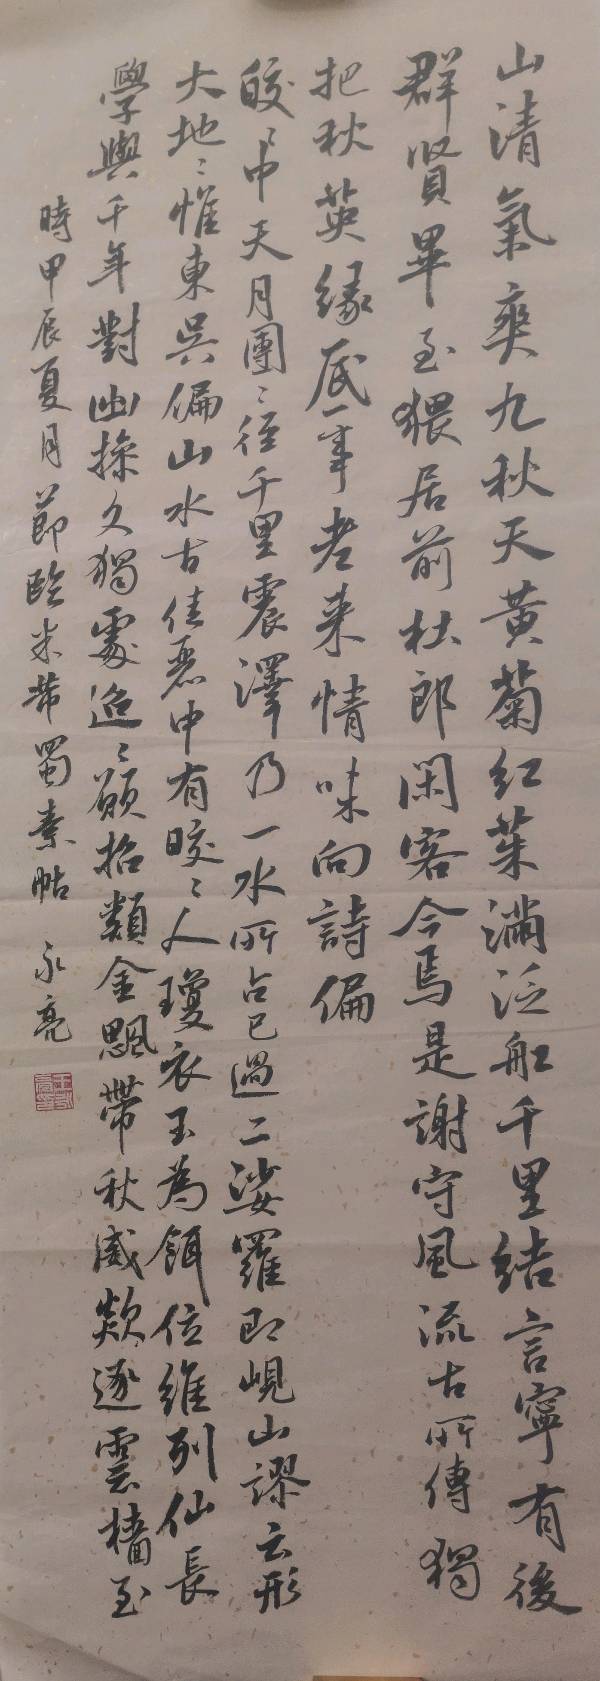 山清氣爽九秋天黃菊紅茱滿泛舡千里結言寧有後
群賢畢至猥居前杜郎閑客今焉是謝守風流古所傳獨
把秋英緣底事老来情味向詩偏
皎〻中天月團〻徑千里震澤乃一水所占已過二娑羅即峴山謬云形
大地〻惟東吳偏山水古佳麗中有皎〻人瓊衣玉為餌位維列仙長
學與千年對幽操久獨處迢〻願招類金飈帶秋威欻逐雲檣至
時甲辰夏月節臨米芾蜀素帖 永亮